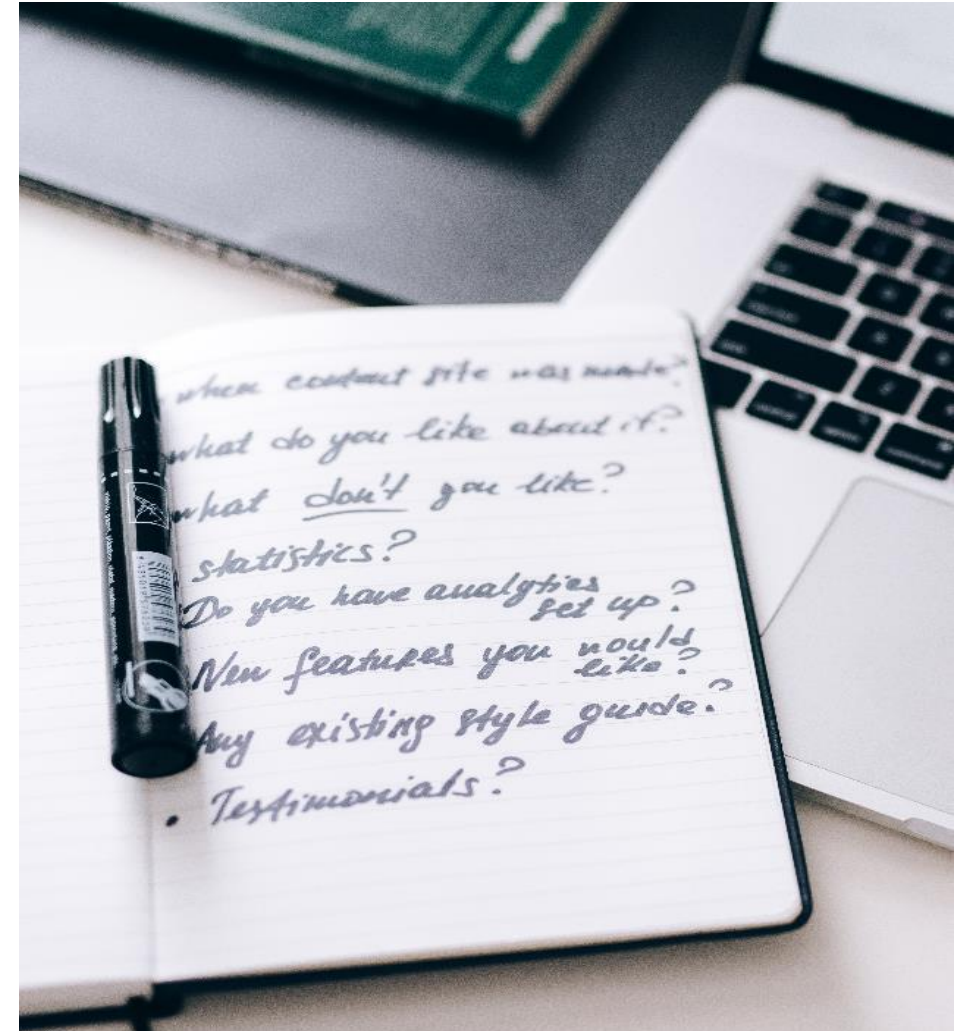 when content site was made?
what do you like about it?
what don't you like?
statistics?
Do you have analytics
set up?
New features you would
like?
Any existing style guide?
• Testimonials?